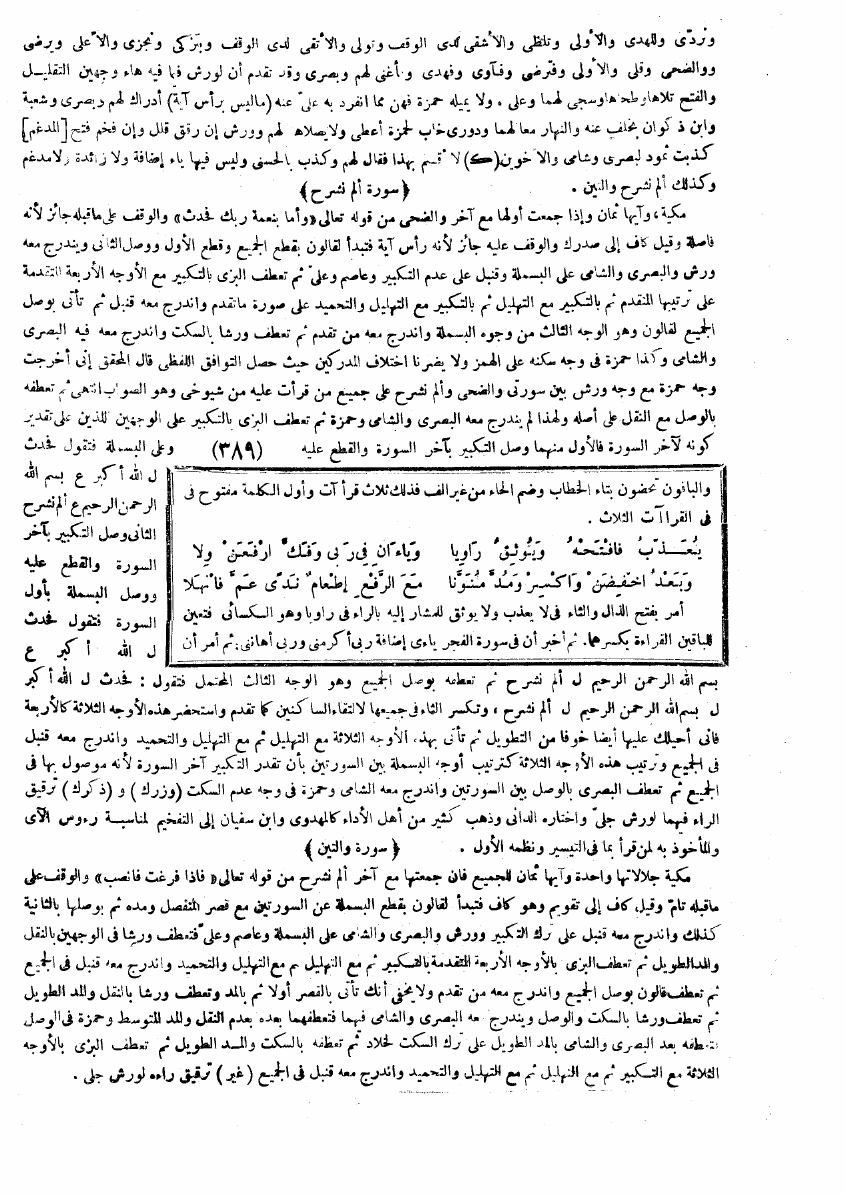 وتردّى وللهدى والأولى وتلظى والأشقى لدى الوقف وتولى والأتقى لدى الوقف ويتزكى وتجزى والأعلى ويرضى
ووالضحى وقلى والأولى وفترضى وفآوى وفهدى وفأغنى لهم وبصرى وقد تقدم أن لورش فيما فيه هاء وجهين التقليل
والفتح تلاها وطحاها وسجى لهما وعلى . ولا يميله حمزة فهن مما انفرد به علىّ عنه (ما ليس برأس آية) أدراك لهم وبصرى وشعبة
وابن ذكوان بخلف عنه والنهار معا لهما ودورى خاب لحمزة أعطى ولا يصلاها لهم وورش إن رقق قلل وإن فخم فتح [المدغم]
كذبت ثمود لبصرى وشامى والأخوين (ك) لا أقسم بهذا فقال لهم وكذب بالحسنى وليس فيها ياء إضافة ولا زائدة ولا مدغم
وكذلك ألم نشرح والتين . ﴿ سورة ألم نشرح ﴾
مكية، وآيها ثمان وإذا جمعت أولها مع آخر والضحى من قوله تعالى «وأما بنعمة ربك فحدث» والوقف على ماقبله جائز لأنه
فاصلة وقيل كاف إلى صدرك والوقف عليه جائز لأنه رأس آية فتبدأ لقالون بقطع الجميع وقطع الأول ووصل الثانى ويندرج معه
ورش والبصرى والشامى على البسملة وقنبل على عدم التكبير وعاصم وعلىّ ثم تعطف البزى بالتكبير مع الأوجه الأربعة المتقدمة
على ترتيبها المتقدم ثم بالتكبير مع التهليل ثم بالتكبير مع التهليل والتحميد على صورة ماتقدم واندرج معه قنبل ثم تأتى بوصل
الجميع لقالون وهو الوجه الثالث من وجوه البسملة واندرج معه من تقدم ثم تعطف ورشا بالسكت واندرج معه فيه البصرى
والشامى وكذا حمزة فى وجه سكته على الهمز ولا يضرنا اختلاف المدركين حيث حصل التوافق اللفظى قال المحقق إنى أخرجت
وجه حمزة مع وجه ورش بين سورتى والضحى وألم نشرح على جميع من قرأت عليه من شيوخى وهو الصواب انتهى ثم تعطفه
بالوصل مع النقل على أصله ولهذا لم يندرج معه البصرى والشامى وحمزة ثم تعطف البزى بالتكبير على الوجهين للذين على تقدير
كونه لآخر السورة فالأول منهما وصل التكبير بآخر السورة والقطع عليه (٣٨٩) وعلى البسملة فتقول فحدث
ل الله أكبر ع بسم الله
الرحمن الرحيم ع ألم نشرح
الثانى وصل التكبير بآخر
السورة والقطع عليه
ووصل البسملة بأول
السورة فتقول فحدث
ل الله أكبر ع
والباقون تحضون بتاء الخطاب وضم الحاء من غير الف فذلك ثلاث قرأ آت وأول الكلمة مفتوح فى
فى القراآت الثلاث .
يُعَذِّبُ فَافْتَحْهُ وَيُوثِقُ رَاوِيا وَيَاءَانِ فِى رَبِّى وَفَكَّ ارْفَعَنْ وِلا
وَبَعْدُ اخْفِضَنْ وَاكْسِرْ وَمُدَّ مُنَوِّنًا مَعَ الرَّفْعِ إِطْعَامٌ نَدَى عَمَّ فَانْهَلا
أمر بفتح الذال والثاء فى لا يعذب ولا يوثق للمشار إليه بالراء فى راويا وهو الكسائى فتعين
للباقين القراءة بكسرهما. ثم أخبر أن فى سورة الفجر ياءى إضافة ربى أكرمنى وربى أهاننى. ثم أمر أن
بسم الله الرحمن الرحيم ل ألم نشرح ثم تعطفه بوصل الجميع وهو الوجه الثالث المحتمل فتقول : فحدث ل الله أكبر
ل بسم الله الرحمن الرحيم ل ألم نشرح ، وتكسر الثاء فى جميعها لالتقاء الساكنين كما تقدم واستحضر هذه الأوجه الثلاثة كالأربعة
فانى أحيلك عليها أيضا خوفا من التطويل ثم تأتى بهذه الأوجه الثلاثة مع التهليل ثم مع التهليل والتحميد واندرج معه قنبل
فى الجميع وترتيب هذه الأوجه الثلاثة كترتيب أوجه البسملة بين السورتين بأن تقدر التكبير آخر السورة لأنه موصول بها فى
الجميع ثم تعطف البصرى بالوصل بين السورتين واندرج معه الشامى وحمزة فى وجه عدم السكت (وزرك) و (ذكرك) ترقيق
الراء فيهما لورش جلىّ واختاره الدانى وذهب كثير من أهل الأداء كالمهدوى وابن سفيان إلى التفخيم لمناسبة رءوس الآى
والمأخوذ به لمن قرأ بما فى التيسير ونظمه الأول . ﴿ سورة والتين ﴾
مكية جلالاتها واحدة وآيها ثمان للجميع فان جمعتها مع آخر ألم نشرح من قوله تعالى «فاذا فرغت فانصب» والوقف على
ماقبله تامّ وقيل كاف إلى تقويم وهو كاف فتبدأ لقالون بقطع البسملة عن السورتين مع قصر المنفصل ومده ثم بوصلها بالثانية
كذلك واندرج معه قنبل على ترك التكبير وورش والبصرى والشامى على البسملة وعاصم وعلىّ فتعطف ورشا فى الوجهين بالنقل
والمد الطويل ثم تعطف البزى بالأوجه الأربعة المتقدمة بالتكبير ثم مع التهليل ثم مع التهليل والتحميد واندرج معه قنبل فى الجميع
ثم تعطف قالون بوصل الجميع واندرج معه من تقدم ولا يخفى أنك تأتى بالقصر أولا ثم بالمد وتعطف ورشا بالنقل والمد الطويل
ثم تعطف ورشا بالسكت والوصل ويندرج معه البصرى والشامى فيهما فتعطفهما بعده بعدم النقل والمد المتوسط وحمزة فى الوصل
فتعطفه بعد البصرى والشامى بالمد الطويل على ترك السكت لخلاد ثم تعطفه بالسكت والمد الطويل ثم تعطف البزى بالأوجه
الثلاثة مع التكبير ثم مع التهليل ثم مع التهليل والتحميد واندرج معه قنبل فى الجميع (غير) ترقيق راءه لورش جلى .